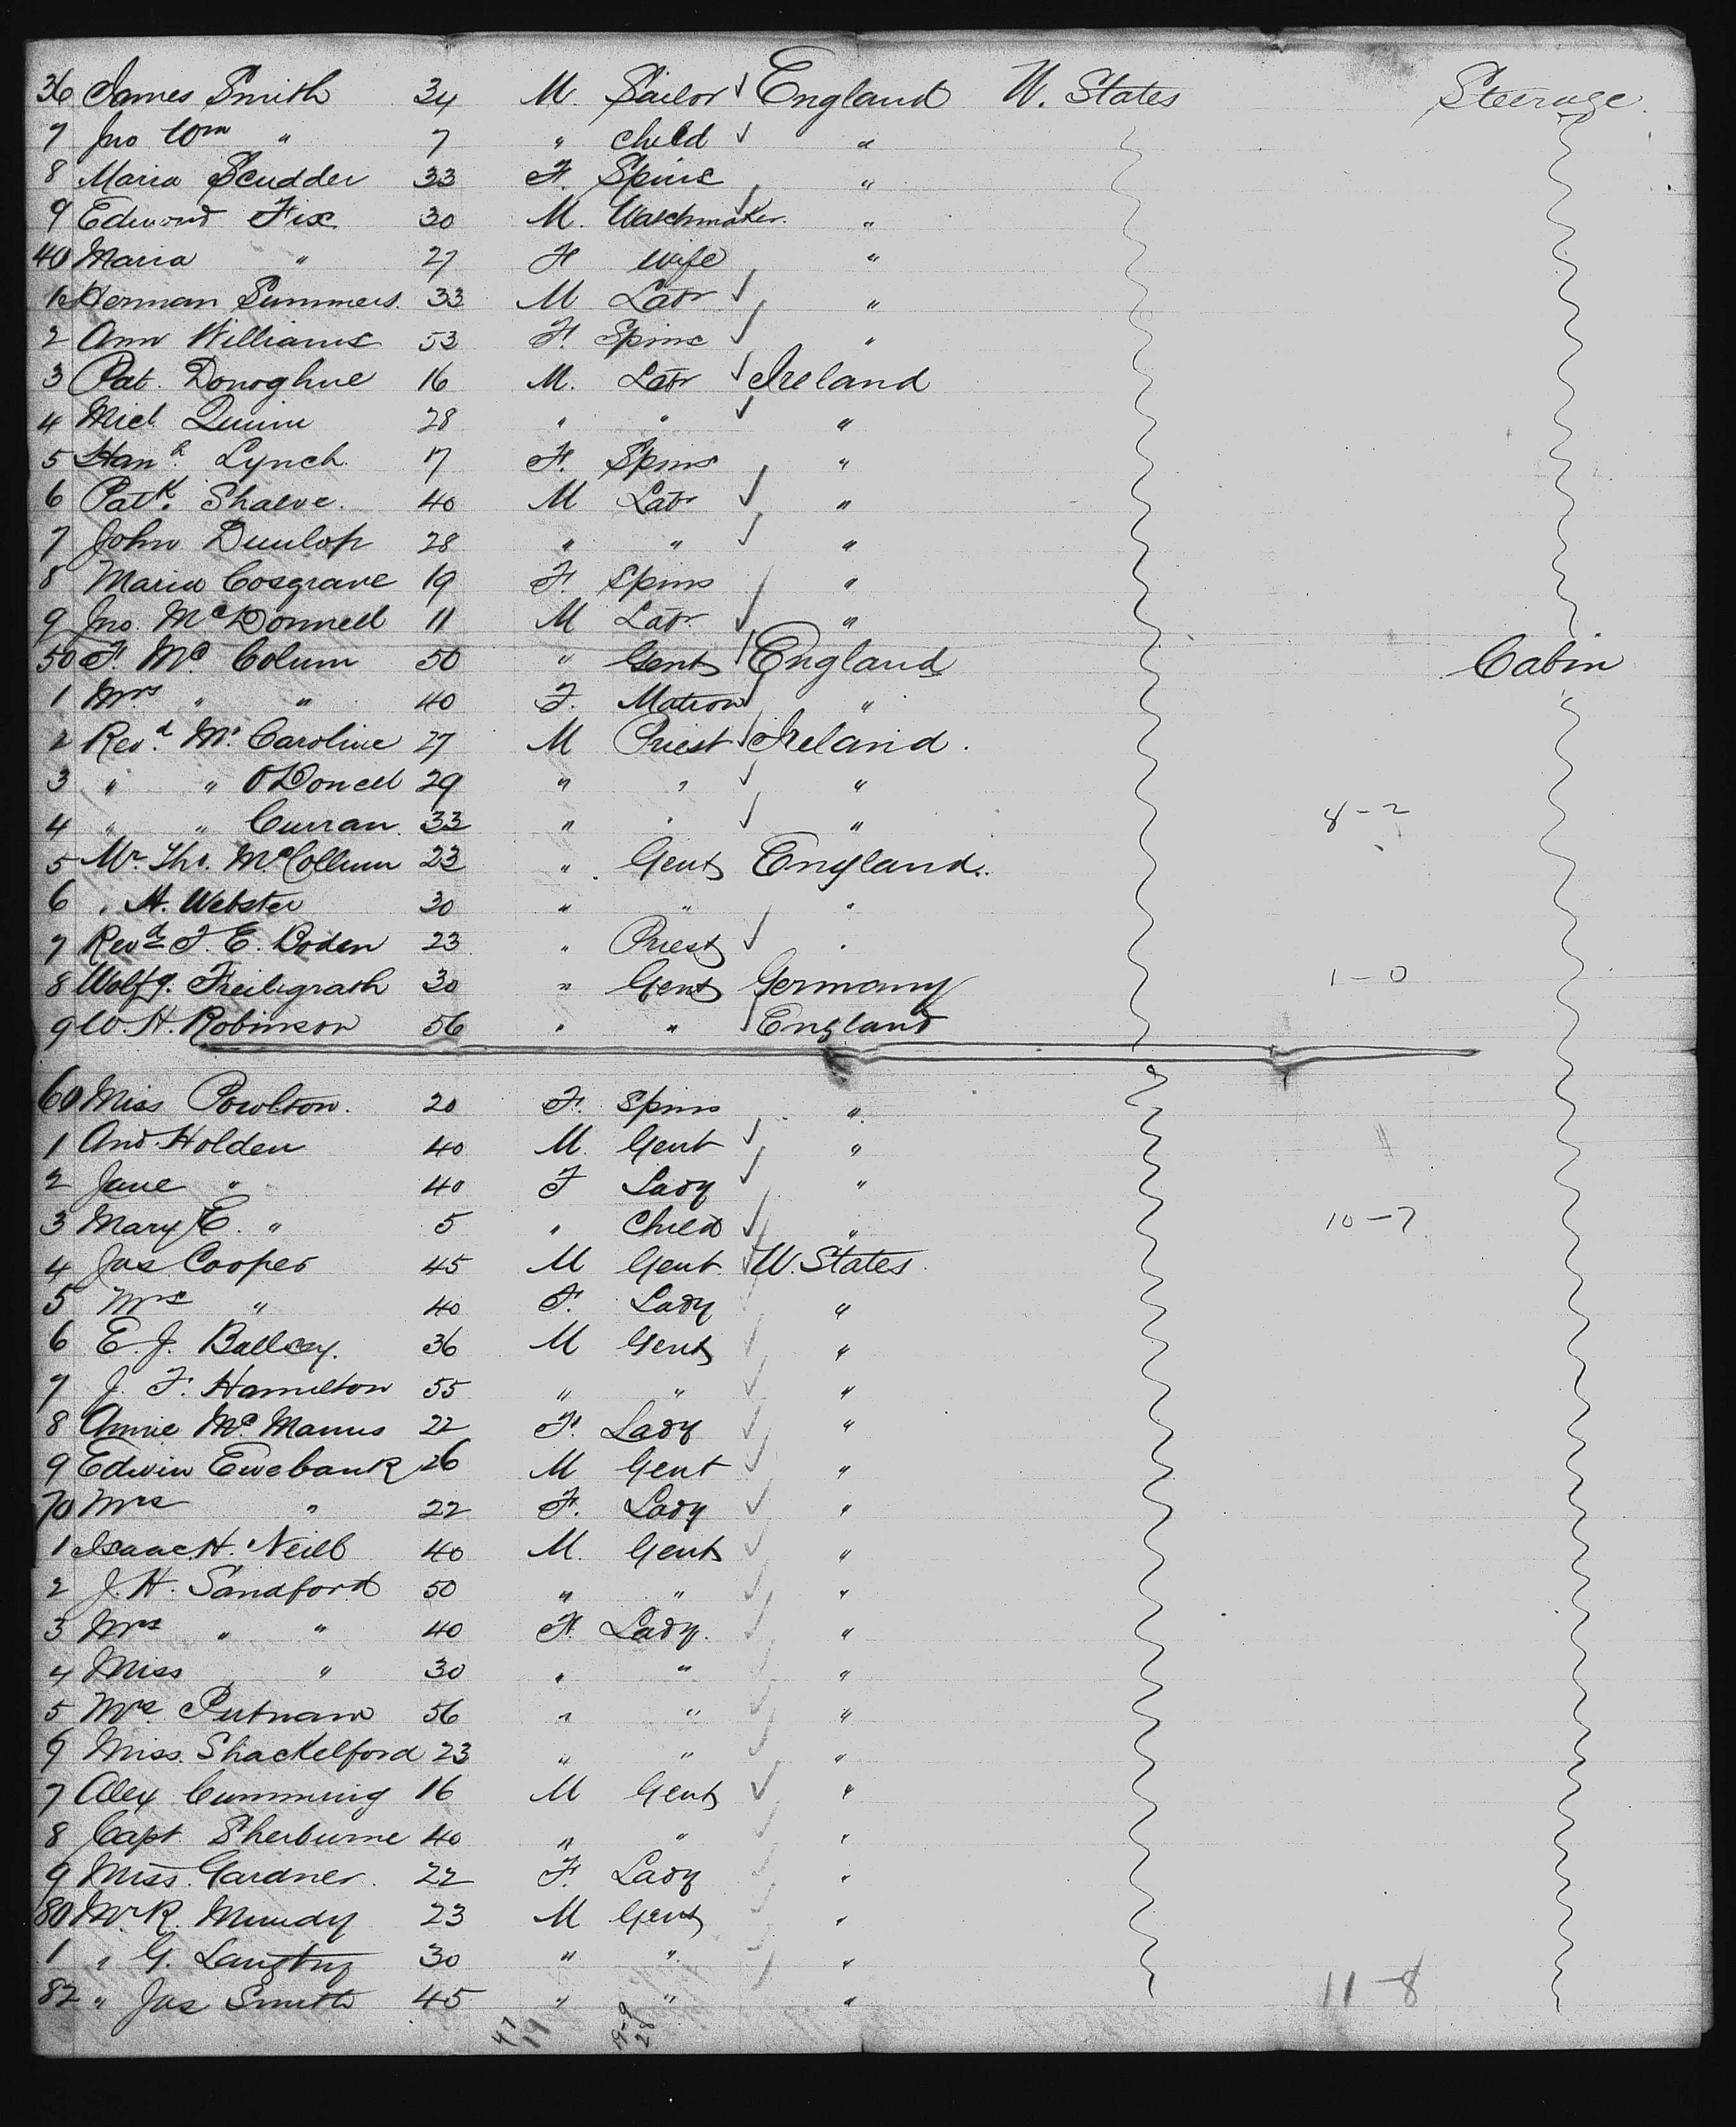 36 James Smith 34 M. Sailor England U. States Steerage
7 Jno Wm " 7 " child "
8 Maria Scudder 33 F. Spins "
9 Edmond Fix 30 M. Watchmaker. "
40 Maria " 27 F wife "
1 Herman Summers. 33 M Labr "
2 Ann Williams 53 F. Spins "
3 Pat. Donoghue 16 M. Labr Ireland
4 Micl. Quinn 28 " " "
5 Hanh. Lynch. 17 F. Spins "
6 Patk. 40 M Labr "
7 John Dunlop 28 " " "
8 Maria Cosgrave 19 F. Spins "
9 Jno. McDonnell 11 M Labr. "
50 F. Mc Colum 50 " Gent England Cabin
1 Mrs " " 40 F. Matron " "
2 Revd. Mr. Caroline 27 M Priest Ireland.
3 " " O'Donell 29 " " "
4 " " Curran. 33 " " " 8-2
5 Mr. Tho. McCollum 23 " Gent England.
6 " H. Webster 30 " " "
7 Revd F. E. Boden 23 " Priest "
8 Wolfg. Freiligrath 30 " Gent Germany 1-0
9 W. H. Robinson 56 " " England
60 Miss Poulton. 20 F. Spins "
1 And. Holden 40 M. Gent "
2 Jane " 40 F Lady "
3 Mary E. " 5 " Child " 10-7
4 Jas Cooper 45 M Gent. U. States.
5 Mrs " 40 F. Lady "
6 E. J. 36 M Gent "
7 J. F. Hamilton 55 " " "
8 Annie McManus 22 F. Lady "
9 Edwin Ewebank 26 M Gent "
70 Mrs " 22 F. Lady "
1 Isaac H. Neill 40 M. Gent "
2 J. H. Sandford 50 " " "
3 Mrs " " 40 F. Lady. "
4 Miss " 30 " " "
5 Mrs. Putnam 56 " " "
6 Miss. Shackelford 23 " " "
7 Alex Cumming 16 M Gent "
8 Capt Sherburne 40 " " "
9 Miss. Gardner. 22 F. Lady "
80 Mr. R. Mundy 23 M Gent "
1 " G. 30 " " "
82 " Jas Smith 45 " " " 11-8
47 19 19-9 28